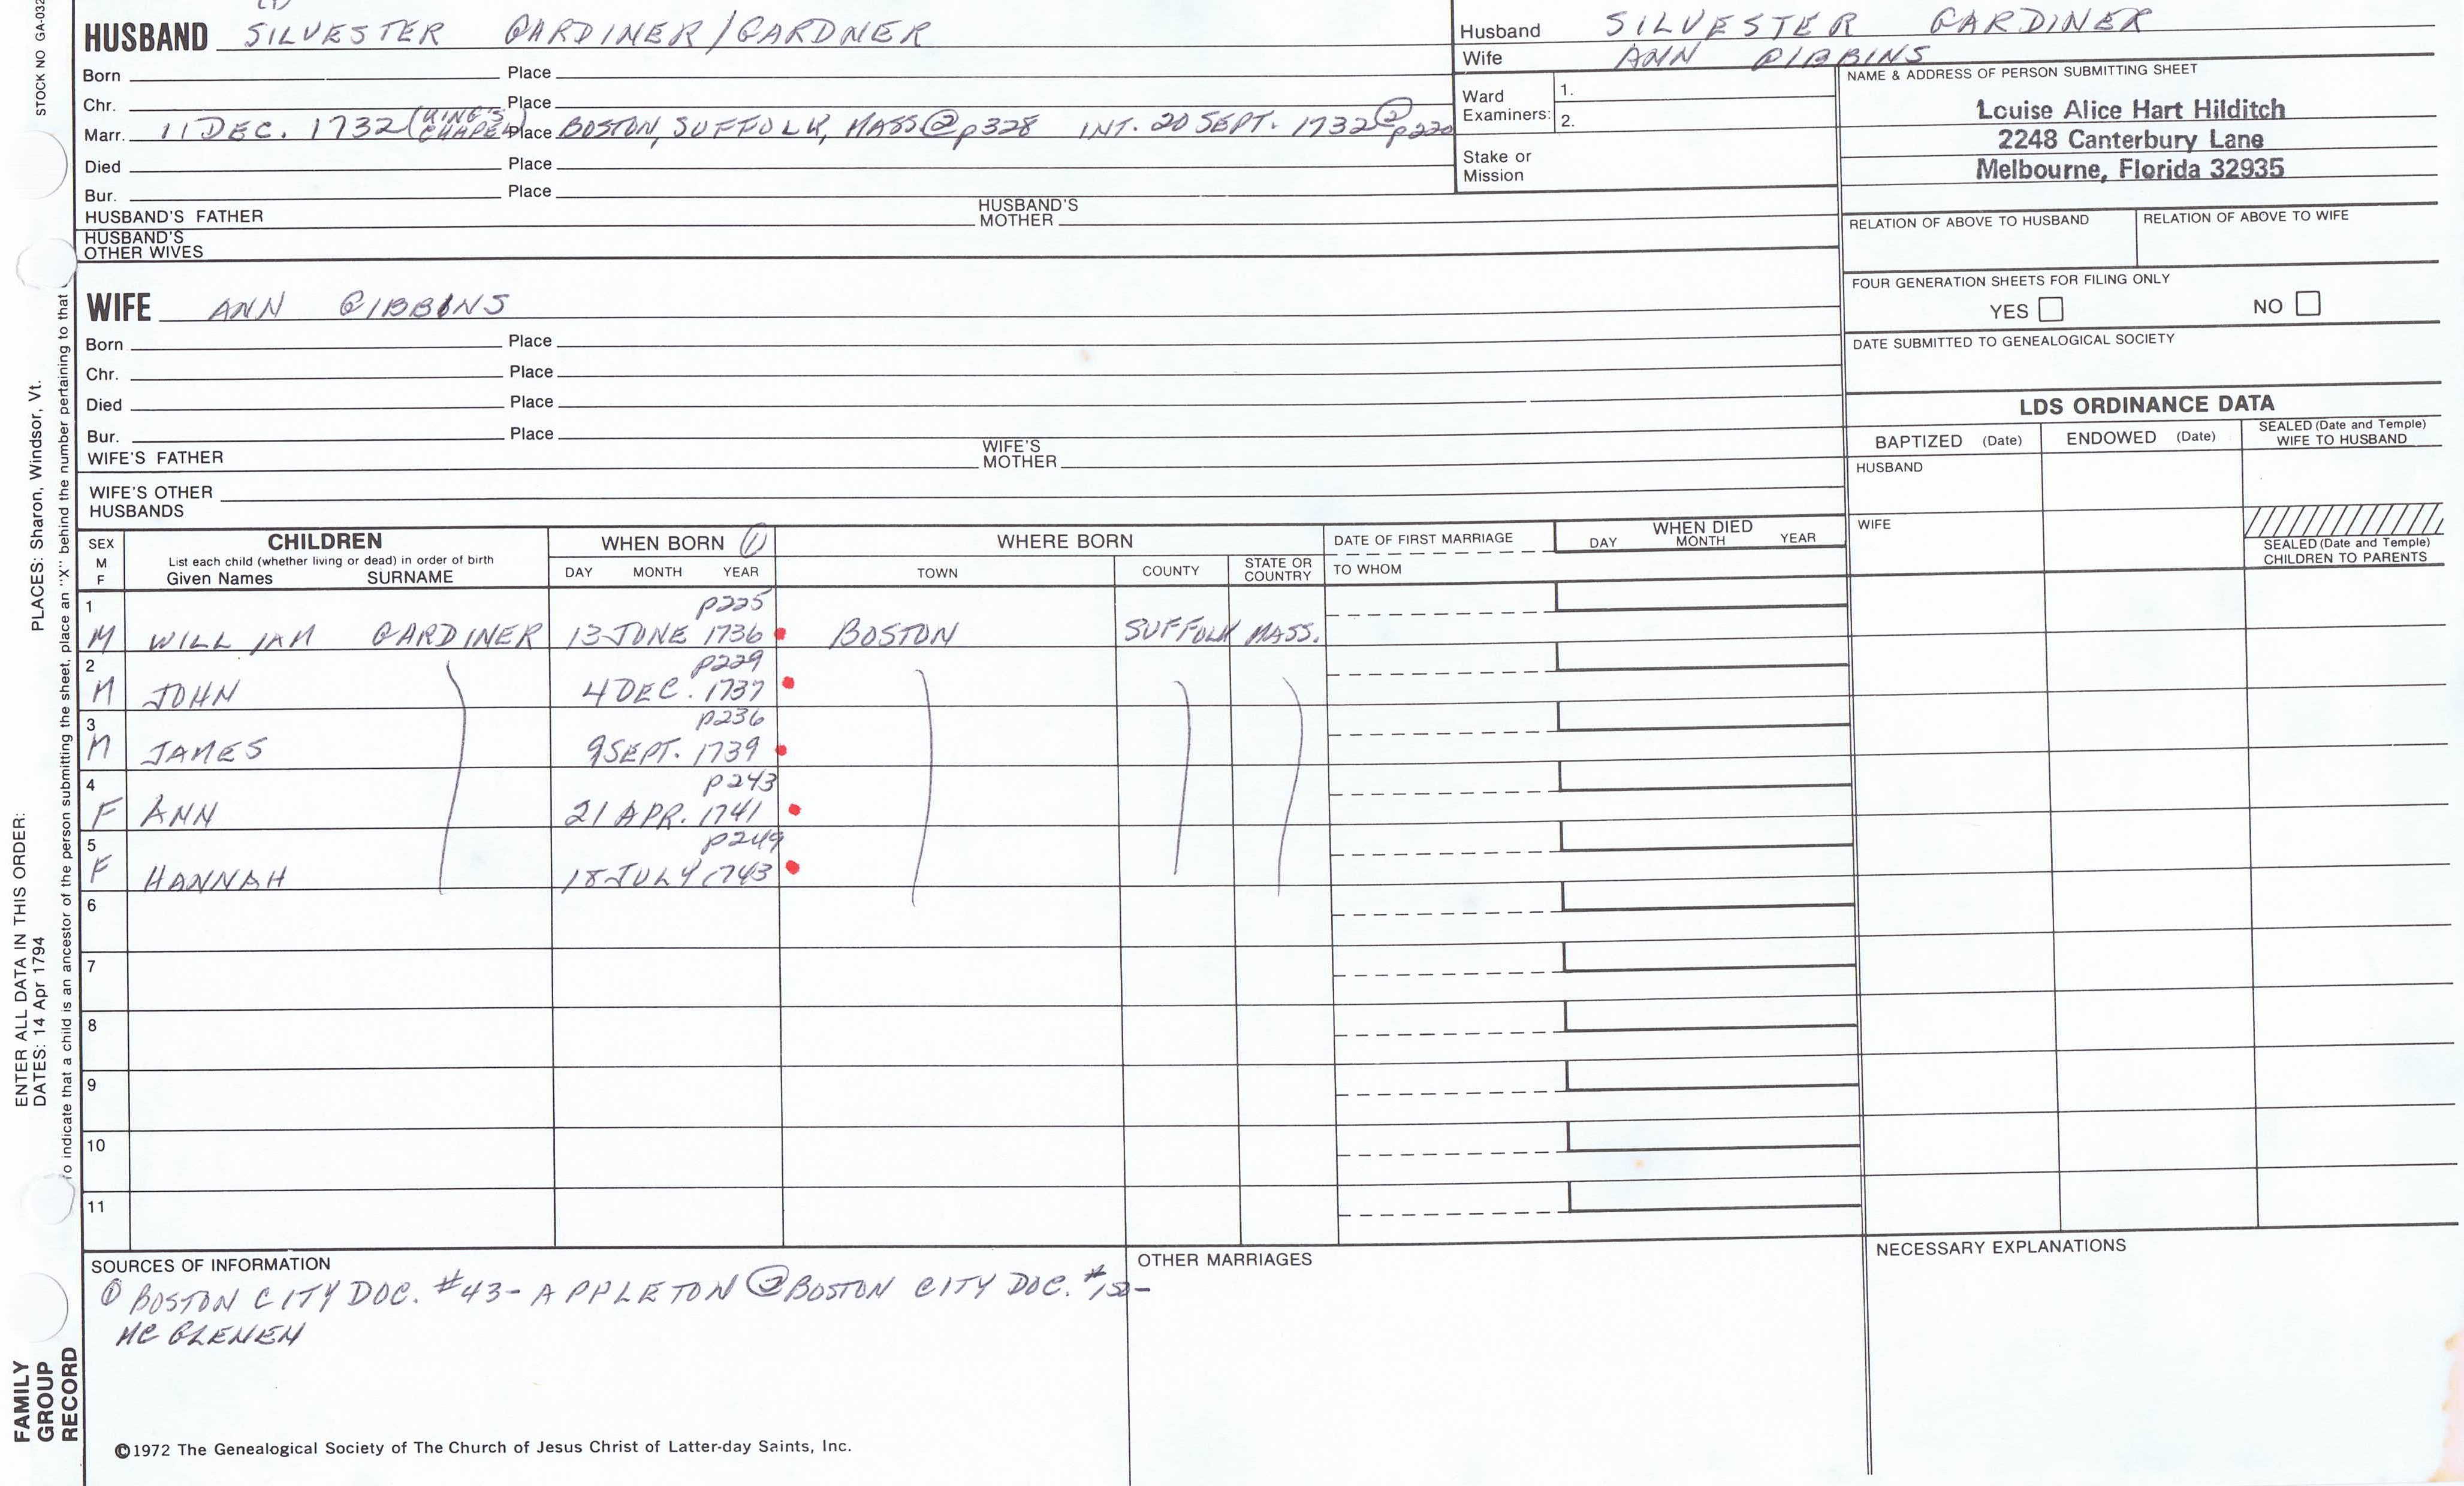 STOCK NO GA-032
(1)
HUSBAND SILVESTER GARDINER/GARDNER
Born Place
Chr. Place
Marr. 11 DEC. 1732 (KING'S CHAPEL) Place BOSTON, SUFFOLK, MASS ② p328 INT. 20 SEPT. 1732 ② p220
Died Place
Bur. Place
HUSBAND'S FATHER HUSBAND'S MOTHER
HUSBAND'S OTHER WIVES
Husband SILVESTER GARDINER
Wife ANN GIBBINS
Ward Examiners: 1.
2.
Stake or Mission
NAME & ADDRESS OF PERSON SUBMITTING SHEET
Louise Alice Hart Hilditch
2248 Canterbury Lane
Melbourne, Florida 32935
RELATION OF ABOVE TO HUSBAND RELATION OF ABOVE TO WIFE
FOUR GENERATION SHEETS FOR FILING ONLY
YES NO
DATE SUBMITTED TO GENEALOGICAL SOCIETY
WIFE ANN GIBBINS
Born Place
Chr. Place
Died Place
Bur. Place
WIFE'S FATHER WIFE'S MOTHER
WIFE'S OTHER HUSBANDS
LDS ORDINANCE DATA
BAPTIZED (Date) ENDOWED (Date) SEALED (Date and Temple) WIFE TO HUSBAND
HUSBAND
WIFE
SEALED (Date and Temple) CHILDREN TO PARENTS
SEX M F
CHILDREN
List each child (whether living or dead) in order of birth
Given Names SURNAME
WHEN BORN ①
DAY MONTH YEAR
WHERE BORN
TOWN COUNTY STATE OR COUNTRY
DATE OF FIRST MARRIAGE
TO WHOM
WHEN DIED
DAY MONTH YEAR
1 p225
M WILLIAM GARDINER 13 JUNE 1736 BOSTON SUFFOLK MASS.
2 p229
M JOHN 4 DEC. 1737
3 p236
M JAMES 9 SEPT. 1739
4 p243
F ANN 21 APR. 1741
5 p249
F HANNAH 18 JULY 1743
6
7
8
9
10
11
SOURCES OF INFORMATION
① BOSTON CITY DOC. #43 - APPLETON ② BOSTON CITY DOC. #150 -
MC GLENEN
OTHER MARRIAGES
NECESSARY EXPLANATIONS
©1972 The Genealogical Society of The Church of Jesus Christ of Latter-day Saints, Inc.
ENTER ALL DATA IN THIS ORDER:
DATES: 14 Apr 1794 PLACES: Sharon, Windsor, Vt.
To indicate that a child is an ancestor of the person submitting the sheet, place an "X" behind the number pertaining to that
FAMILY
GROUP
RECORD